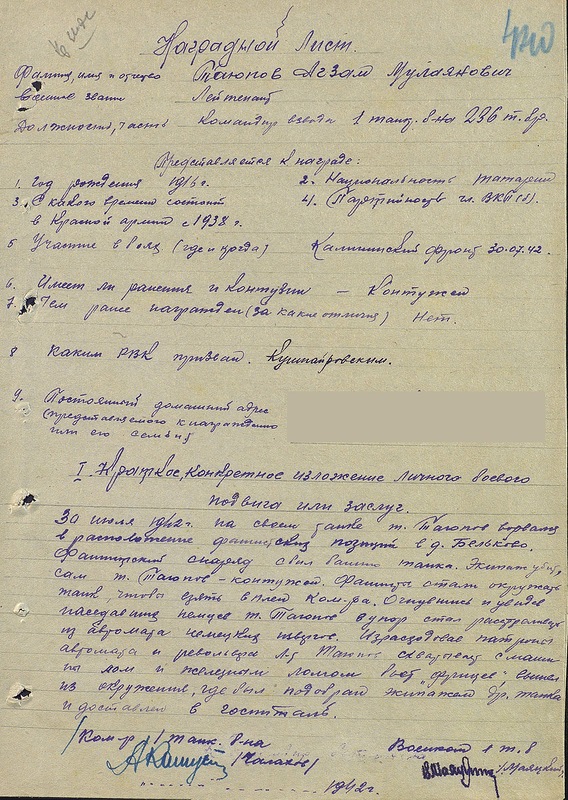 Наградной Лист.
Фамилия, имя и отчество Таюпов Агзам Мулаянович
Военное звание Лейтенант
Должность, часть Командир взвода 1 танк. б-на 236 т. бр.
Представляется к награде:
1. Год рождения 1916 г. 2. Национальность татарин
3. С какого времени состоит 4. Партийность чл. ВКП(б).
в Красной армии с 1938 г.
5 Участие в боях (где и когда) Калининский фронт 30.07.42.
6. Имеет ли ранения и контузии – Контужен
7. Чем ранее награжден (за какие отличия) Нет.
8 каким РВК призван. Кушнаировским.
9. Постоянный домашний адрес
(представляемого к награждению
или его семьи)
I. Краткое, конкретное изложение личного боевого
подвига или заслуг.
30 июля 1942 г. на своем танке т. Таюпов ворвался
в расположение фашистских позиций в д. Бельково.
Фашистский снаряд сбил башню танка. Экипаж убит,
сам т. Таюпов - контужен. Фашисты стали окружать
танк, чтобы взять в плен Ком-ра. Очнувшись и увидев
наседавших немцев т. Таюпов в упор стал расстреливать
из автомата немецких
Израсходовав патроны
автомата и револьвера Л-т Таюпов схватил с маши-
ны лом и железным ломом бьет "фрицев", вышел
из окружения, где был подобран экипажем др. танка
и доставлен в госпиталь.
/Ком-р 1 танк. б-на Военком 1 т. б
1942 г.